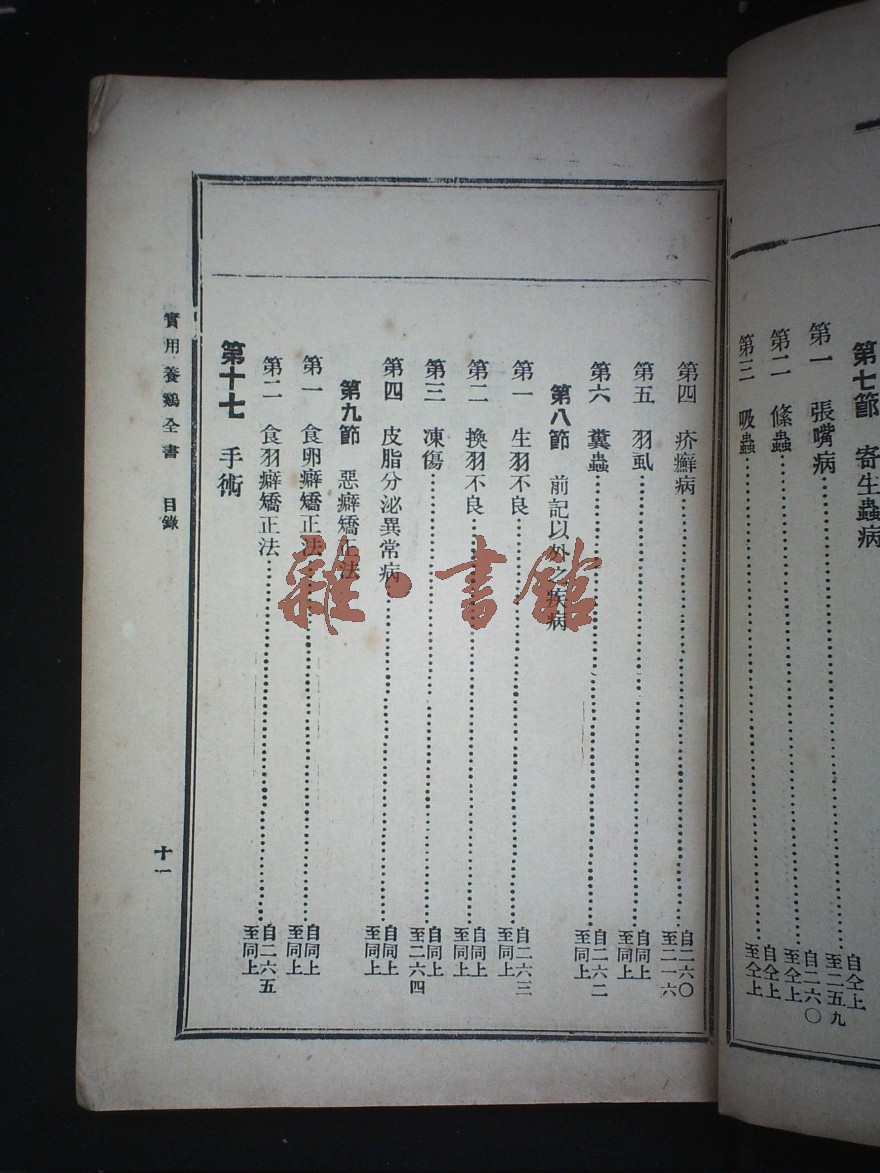 第七節　寄生蟲病
第一　張嘴病……自仝上至二五九
第二　絛蟲……自二六〇至仝上
第三　吸蟲……自仝上至仝上
第四　疥癬病……自二六〇至二一六
第五　羽虱……自同上至同上
第六　糞蟲……自二六二至同上
第八節　前記以外之疾病
第一　生羽不良……自二六三至同上
第二　換羽不良……自同上至同上
第三　凍傷……自同上至二六四
第四　皮脂分泌異常病……自同上至同上
第九節　惡癖矯正法
第一　食卵癖矯正法……自同上至同上
第二　食羽癖矯正法……自二六五至同上
第十七　手術
實用養鷄全書　目錄
十一
雜·書館